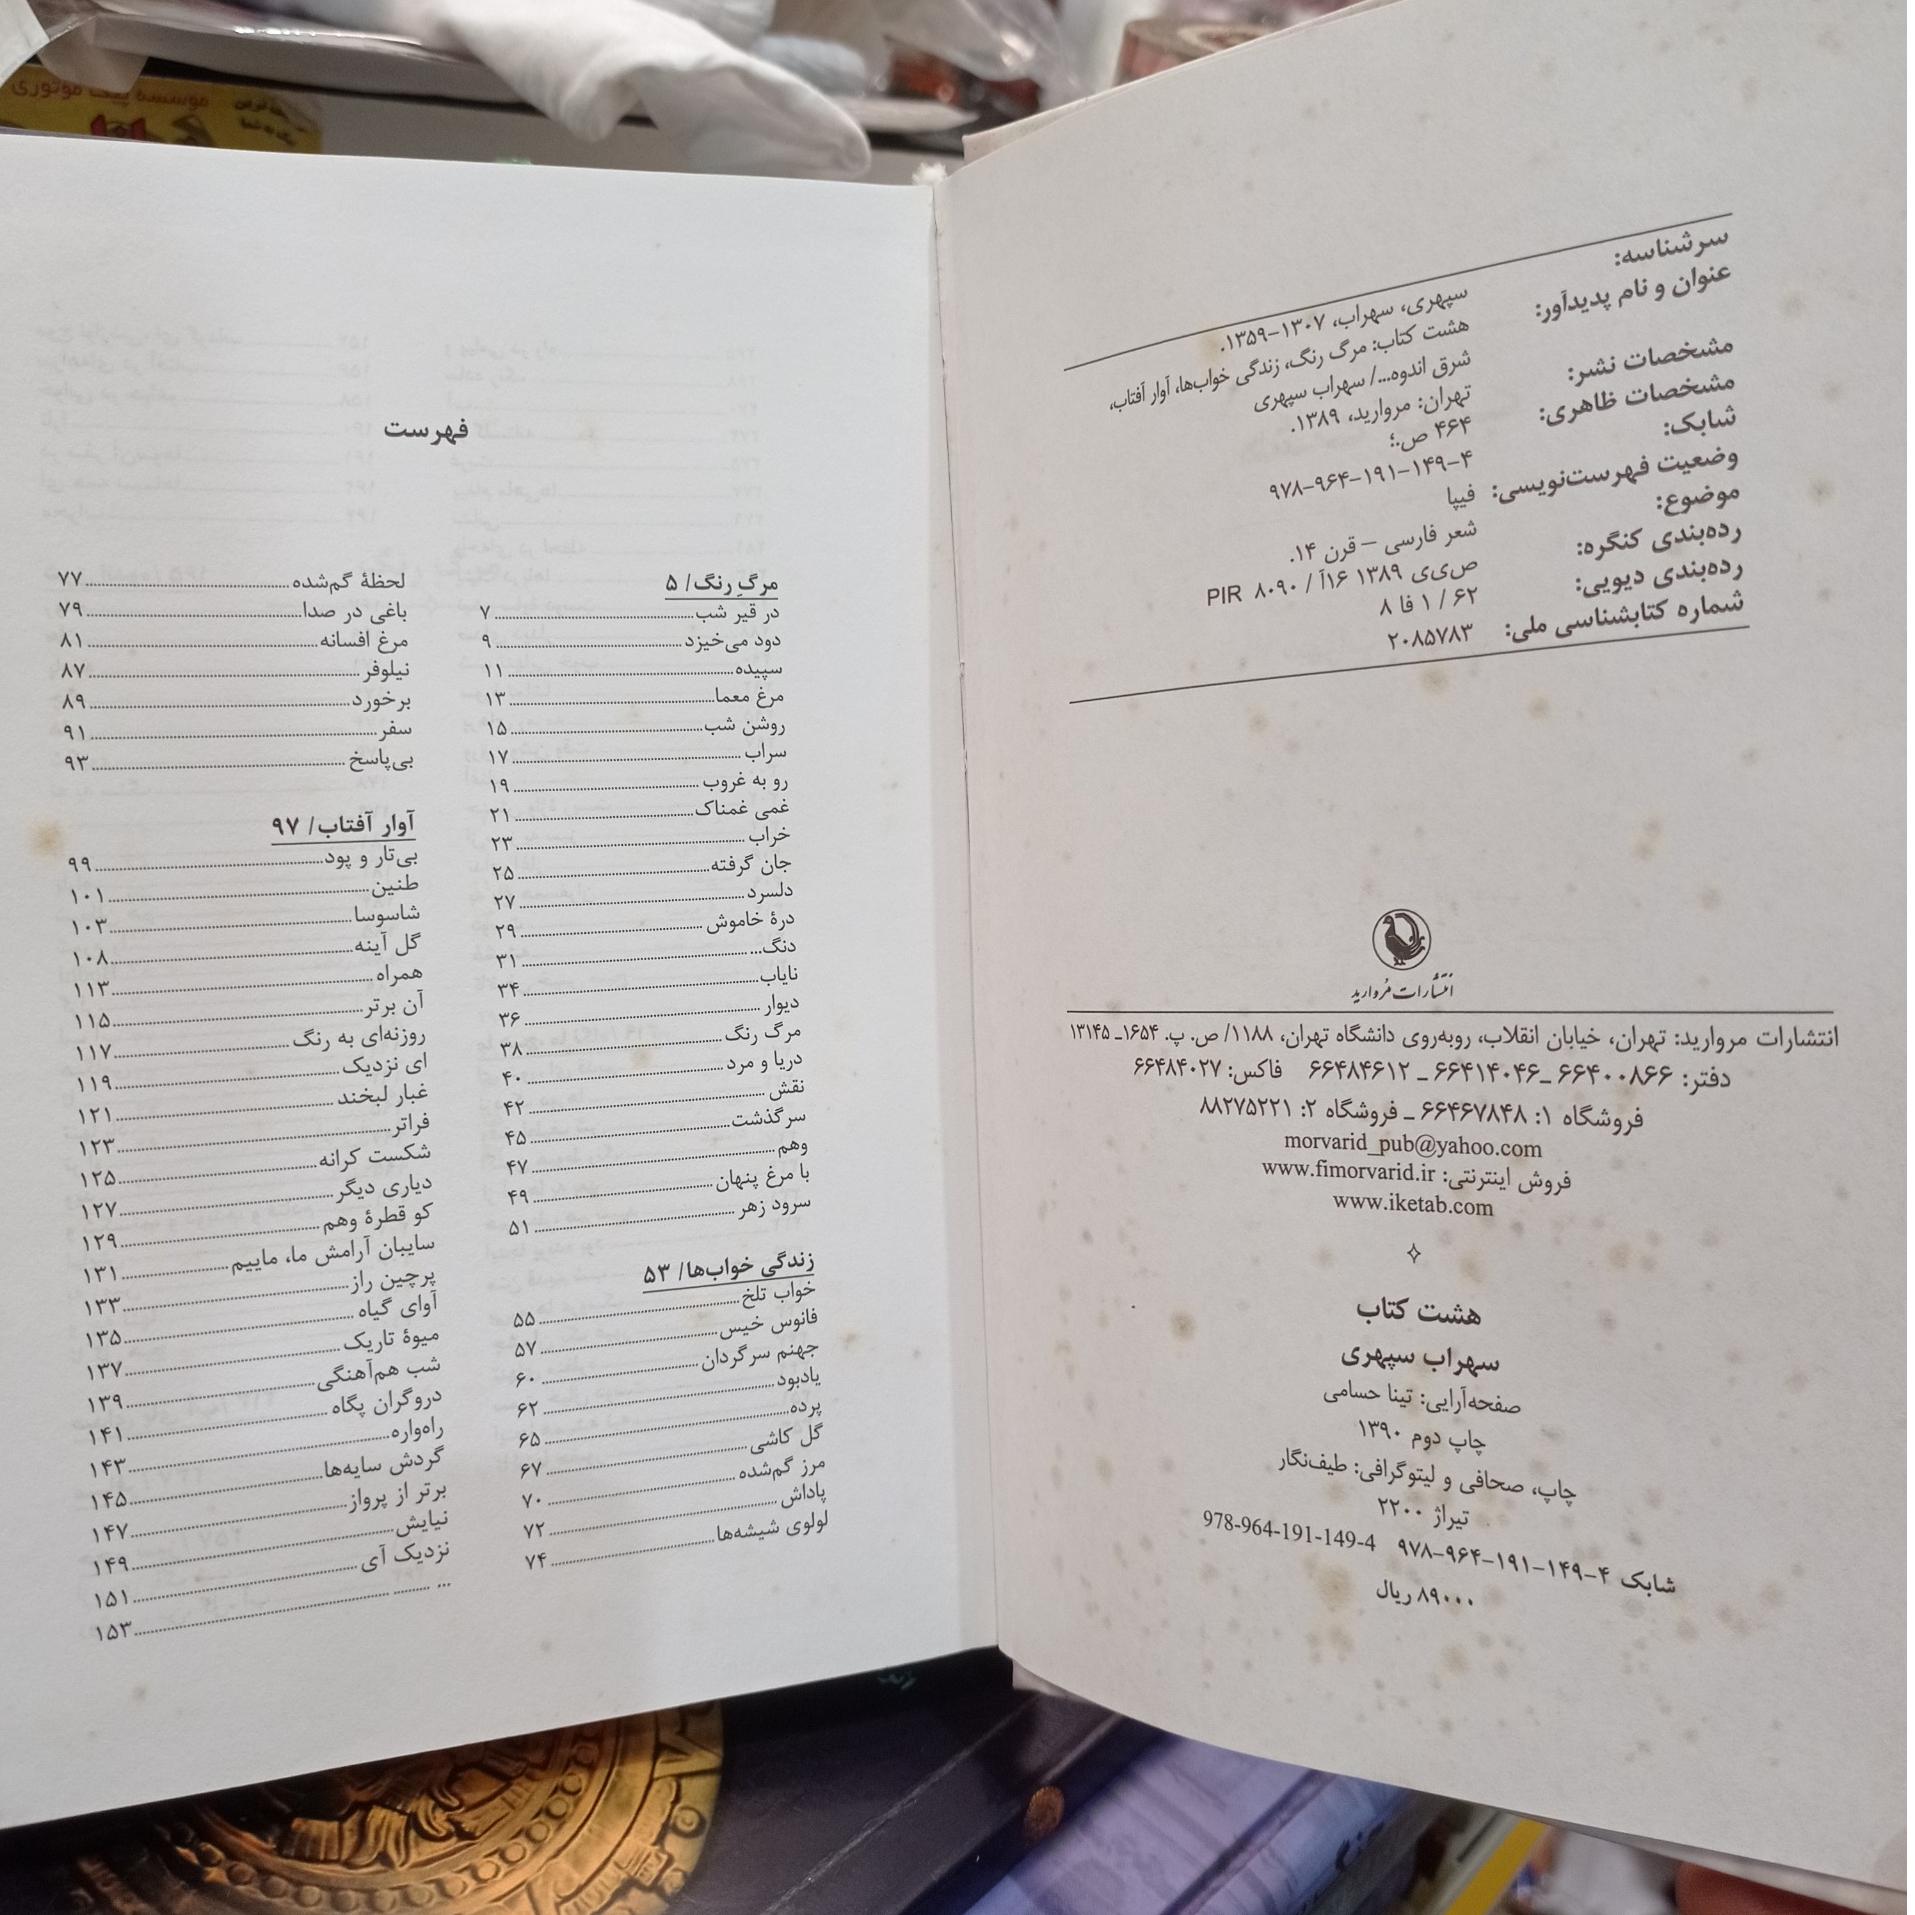 سرشناسه: سپهری، سهراب، ۱۳۰۷-۱۳۵۹.
عنوان و نام پدیدآور: هشت کتاب: مرگ رنگ، زندگی خواب‌ها، آوار آفتاب،
شرق اندوه.../ سهراب سپهری
مشخصات نشر: تهران: مروارید، ۱۳۸۹.
مشخصات ظاهری: ۴۶۴ ص.؛
شابک: ۹۷۸-۹۶۴-۱۹۱-۱۴۹-۴
وضعیت فهرست‌نویسی: فیپا
موضوع: شعر فارسی – قرن ۱۴.
رده‌بندی کنگره: PIR ۸۰۹۰ / آ۱۶ ۱۳۸۹ ص‌ی‌ی
رده‌بندی دیویی: ۶۲ / ۱ فا ۸
شماره کتابشناسی ملی: ۲۰۸۵۷۸۳
انتشارات مروارید
انتشارات مروارید: تهران، خیابان انقلاب، روبه‌روی دانشگاه تهران، ۱۱۸۸/ ص. پ. ۱۶۵۴ـ ۱۳۱۴۵
دفتر: ۶۶۴۰۰۸۶۶ ـ۶۶۴۱۴۰۴۶ ـ ۶۶۴۸۴۶۱۲ فاکس: ۶۶۴۸۴۰۲۷
فروشگاه ۱: ۶۶۴۶۷۸۴۸ ـ فروشگاه ۲: ۸۸۲۷۵۲۲۱
morvarid_pub@yahoo.com
فروش اینترنتی: www.fimorvarid.ir
www.iketab.com
هشت کتاب
سهراب سپهری
صفحه‌آرایی: تینا حسامی
چاپ دوم ۱۳۹۰
چاپ، صحافی و لیتوگرافی: طیف‌نگار
تیراژ ۲۲۰۰
شابک ۴-۱۴۹-۱۹۱-۹۶۴-۹۷۸ 978-964-191-149-4
۸۹۰۰۰ ریال
فهرست
مرگِ رنگ/ ۵
در قیر شب ۷
دود می‌خیزد ۹
سپیده ۱۱
مرغ معما ۱۳
روشن شب ۱۵
سراب ۱۷
رو به غروب ۱۹
غمی غمناک ۲۱
خراب ۲۳
جان گرفته ۲۵
دلسرد ۲۷
درهٔ خاموش ۲۹
دنگ... ۳۱
نایاب ۳۴
دیوار ۳۶
مرگ رنگ ۳۸
دریا و مرد ۴۰
نقش ۴۲
سرگذشت ۴۵
وهم ۴۷
با مرغ پنهان ۴۹
سرود زهر ۵۱
زندگی خواب‌ها/ ۵۳
خواب تلخ ۵۵
فانوس خیس ۵۷
جهنم سرگردان ۶۰
یادبود ۶۲
پرده ۶۵
گل کاشی ۶۷
مرز گم‌شده ۷۰
پاداش ۷۲
لولوی شیشه‌ها ۷۴
لحظهٔ گم‌شده ۷۷
باغی در صدا ۷۹
مرغ افسانه ۸۱
نیلوفر ۸۷
برخورد ۸۹
سفر ۹۱
بی‌پاسخ ۹۳
آوار آفتاب/ ۹۷
بی‌تار و پود ۹۹
طنین ۱۰۱
شاسوسا ۱۰۳
گل آینه ۱۰۸
همراه ۱۱۳
آن برتر ۱۱۵
روزنه‌ای به رنگ ۱۱۷
ای نزدیک ۱۱۹
غبار لبخند ۱۲۱
فراتر ۱۲۳
شکست کرانه ۱۲۵
دیاری دیگر ۱۲۷
کو قطرهٔ وهم ۱۲۹
سایبان آرامش ما، ماییم ۱۳۱
پرچین راز ۱۳۳
آوای گیاه ۱۳۵
میوهٔ تاریک ۱۳۷
شب هم‌آهنگی ۱۳۹
دروگران پگاه ۱۴۱
راه‌واره ۱۴۳
گردش سایه‌ها ۱۴۵
برتر از پرواز ۱۴۷
نیایش ۱۴۹
نزدیک آی ۱۵۱
... ۱۵۳
موسسه پیک موتوری